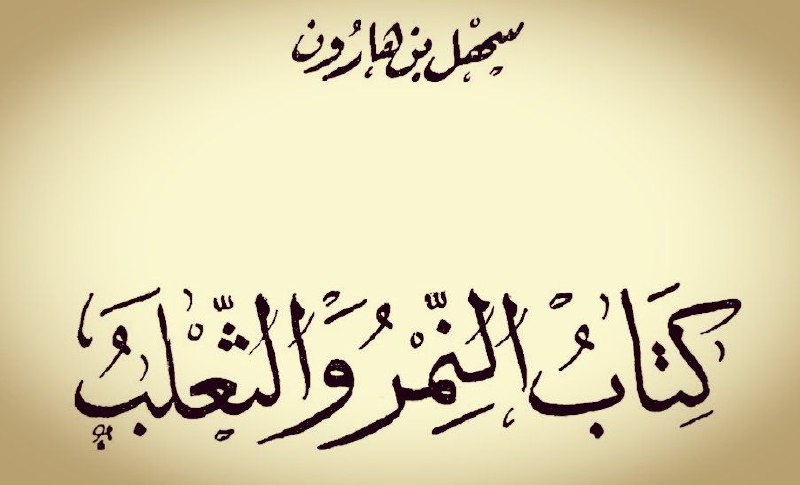 سهْل بن هارُون
كِتَابُ النِّمْرُ وَالثَّعْلَبُ